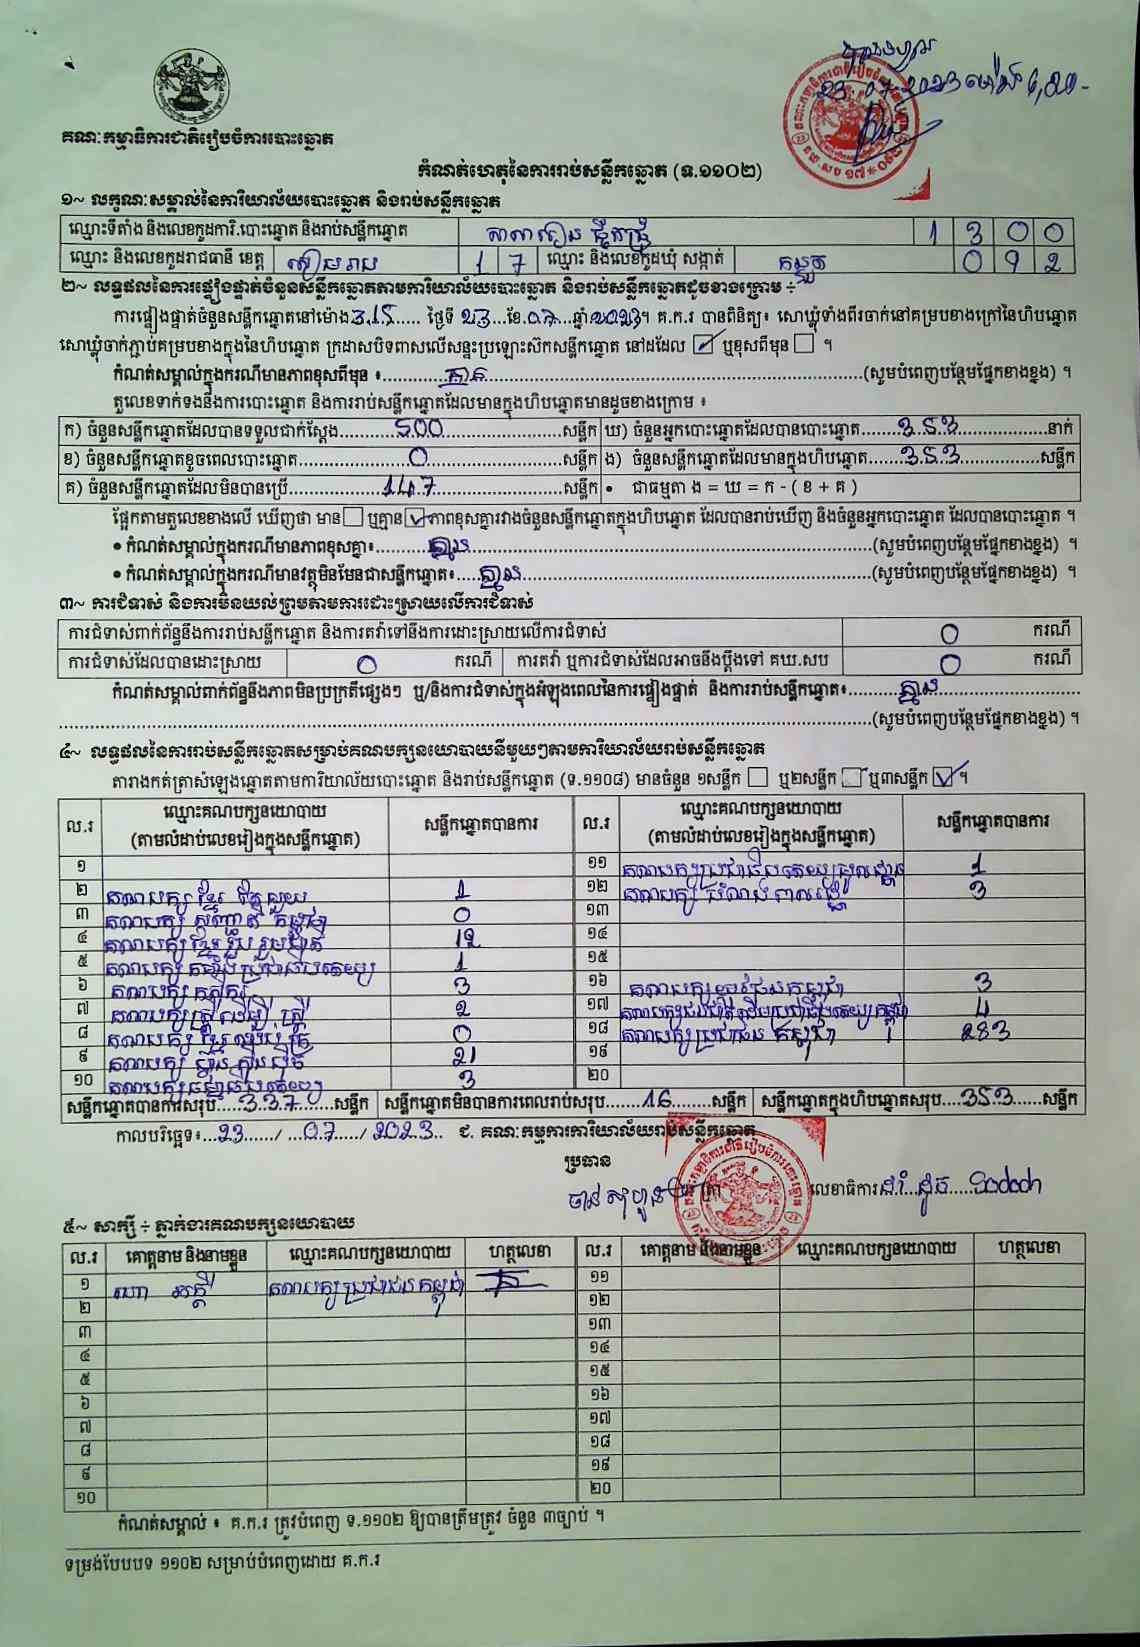 23.07.2023 ម៉ោង
គណៈកម្មាធិការជាតិរៀបចំការបោះឆ្នោត
កំណត់ហេតុនៃការរាប់សន្លឹកឆ្នោត (ទ.១១០២)
១~ លក្ខណៈសម្គាល់នៃការិយាល័យបោះឆ្នោត និងរាប់សន្លឹកឆ្នោត
ឈ្មោះទីតាំង និងលេខកូដការិ.បោះឆ្នោត និងរាប់សន្លឹកឆ្នោត សាលារៀន 1 3 0 0
ឈ្មោះ និងលេខកូដរាជធានី ខេត្ត សៀមរាប 1 7 ឈ្មោះ និងលេខកូដឃុំ សង្កាត់ 0 9 2
២~ លទ្ធផលនៃការផ្ទៀងផ្ទាត់ចំនួនសន្លឹកឆ្នោតតាមការិយាល័យបោះឆ្នោត និងរាប់សន្លឹកឆ្នោតដូចខាងក្រោម ÷
ការផ្ទៀងផ្ទាត់ចំនួនសន្លឹកឆ្នោតនៅម៉ោង 3.15 ថ្ងៃទី 23 ខែ 07 ឆ្នាំ 2023។ គ.ក.រ បានពិនិត្យ៖ សោឃ្លុំទាំងពីរចាក់នៅគម្របខាងក្រៅនៃហិបឆ្នោត
សោឃ្លុំចាក់ភ្ជាប់គម្របខាងក្នុងនៃហិបឆ្នោត ក្រដាសបិទពាសលើសន្ទះប្រឡោះស៊កសន្លឹកឆ្នោត នៅដដែល ☑ ឬខុសពីមុន ☐ ។
កំណត់សម្គាល់ក្នុងករណីមានភាពខុសពីមុន ៖ គ្មាន (សូមបំពេញបន្ថែមផ្នែកខាងខ្នង) ។
តួលេខទាក់ទងនឹងការបោះឆ្នោត និងការរាប់សន្លឹកឆ្នោតដែលមានក្នុងហិបឆ្នោតមានដូចខាងក្រោម ៖
ក) ចំនួនសន្លឹកឆ្នោតដែលបានទទួលជាក់ស្តែង 500 សន្លឹក ឃ) ចំនួនអ្នកបោះឆ្នោតដែលបានបោះឆ្នោត 353 នាក់
ខ) ចំនួនសន្លឹកឆ្នោតខូចពេលបោះឆ្នោត 0 សន្លឹក ង) ចំនួនសន្លឹកឆ្នោតដែលមានក្នុងហិបឆ្នោត 353 សន្លឹក
គ) ចំនួនសន្លឹកឆ្នោតដែលមិនបានប្រើ 147 សន្លឹក • ជាធម្មតា ង = ឃ = ក - ( ខ + គ )
ផ្អែកតាមតួលេខខាងលើ ឃើញថា មាន ☐ ឬគ្មាន ☑ ភាពខុសគ្នារវាងចំនួនសន្លឹកឆ្នោតក្នុងហិបឆ្នោត ដែលបានរាប់ឃើញ និងចំនួនអ្នកបោះឆ្នោត ដែលបានបោះឆ្នោត ។
• កំណត់សម្គាល់ក្នុងករណីមានភាពខុសគ្នា៖ គ្មាន (សូមបំពេញបន្ថែមផ្នែកខាងខ្នង) ។
• កំណត់សម្គាល់ក្នុងករណីមានវត្ថុមិនមែនជាសន្លឹកឆ្នោត៖ គ្មាន (សូមបំពេញបន្ថែមផ្នែកខាងខ្នង) ។
៣~ ការជំទាស់ និងការមិនយល់ព្រមតាមការដោះស្រាយលើការជំទាស់
ការជំទាស់ពាក់ព័ន្ធនឹងការរាប់សន្លឹកឆ្នោត និងការតវ៉ាទៅនឹងការដោះស្រាយលើការជំទាស់ 0 ករណី
ការជំទាស់ដែលបានដោះស្រាយ 0 ករណី ការតវ៉ា ឬការជំទាស់ដែលអាចនឹងប្តឹងទៅ គឃ.សប 0 ករណី
កំណត់សម្គាល់ពាក់ព័ន្ធនឹងភាពមិនប្រក្រតីផ្សេងៗ ឬ/និងការជំទាស់ក្នុងអំឡុងពេលនៃការផ្ទៀងផ្ទាត់ និងការរាប់សន្លឹកឆ្នោត៖ គ្មាន
(សូមបំពេញបន្ថែមផ្នែកខាងខ្នង) ។
៤~ លទ្ធផលនៃការរាប់សន្លឹកឆ្នោតសម្រាប់គណបក្សនយោបាយនីមួយៗតាមការិយាល័យរាប់សន្លឹកឆ្នោត
តារាងកត់ត្រាសំឡេងឆ្នោតតាមការិយាល័យបោះឆ្នោត និងរាប់សន្លឹកឆ្នោត (ទ.១១០៨) មានចំនួន ១សន្លឹក ☐ ឬ២សន្លឹក ☐ ឬ៣សន្លឹក ☑ ។
ល.រ ឈ្មោះគណបក្សនយោបាយ (តាមលំដាប់លេខរៀងក្នុងសន្លឹកឆ្នោត) សន្លឹកឆ្នោតបានការ ល.រ ឈ្មោះគណបក្សនយោបាយ (តាមលំដាប់លេខរៀងក្នុងសន្លឹកឆ្នោត) សន្លឹកឆ្នោតបានការ
១ ១១ គណបក្សប្រជាធិបតេយ្យមូលដ្ឋាន 1
២ គណបក្ស ខ្មែរ តែមួយ 1 ១២ គណបក្ស 3
៣ គណបក្ស សញ្ជាតិ កម្ពុជា 0 ១៣
៤ គណបក្ស ខ្មែរ រួបរួមជាតិ 12 ១៤
៥ គណបក្ស កម្លាំងប្រជាធិបតេយ្យ 1 ១៥
៦ គណបក្ស កសិករ 3 ១៦ គណបក្សយុវជនកម្ពុជា 3
៧ គណបក្សស្ត្រី ដើម្បី ស្ត្រី 2 ១៧ 4
៨ គណបក្ស ខ្មែរ 0 ១៨ គណបក្សប្រជាជន កម្ពុជា 283
៩ គណបក្ស ហ៊្វុនស៊ិនប៉ិច 21 ១៩
១០ គណបក្សធម្មាធិបតេយ្យ 3 ២០
សន្លឹកឆ្នោតបានការសរុប 337 សន្លឹក សន្លឹកឆ្នោតមិនបានការពេលរាប់សរុប 16 សន្លឹក សន្លឹកឆ្នោតក្នុងហិបឆ្នោតសរុប 353 សន្លឹក
កាលបរិច្ឆេទ៖ 23 / 07 / 2023 ជ. គណៈកម្មការការិយាល័យរាប់សន្លឹកឆ្នោត
ប្រធាន
លេខាធិការ
៥~ សាក្សី ÷ ភ្នាក់ងារគណបក្សនយោបាយ
ល.រ គោត្តនាម និងនាមខ្លួន ឈ្មោះគណបក្សនយោបាយ ហត្ថលេខា ល.រ គោត្តនាម និងនាមខ្លួន ឈ្មោះគណបក្សនយោបាយ ហត្ថលេខា
១ គណបក្សប្រជាជនកម្ពុជា ១១
២ ១២
៣ ១៣
៤ ១៤
៥ ១៥
៦ ១៦
៧ ១៧
៨ ១៨
៩ ១៩
១០ ២០
កំណត់សម្គាល់ ៖ គ.ក.រ ត្រូវបំពេញ ទ.១១០២ ឱ្យបានត្រឹមត្រូវ ចំនួន ៣ច្បាប់ ។
ទម្រង់បែបបទ ១១០២ សម្រាប់បំពេញដោយ គ.ក.រ